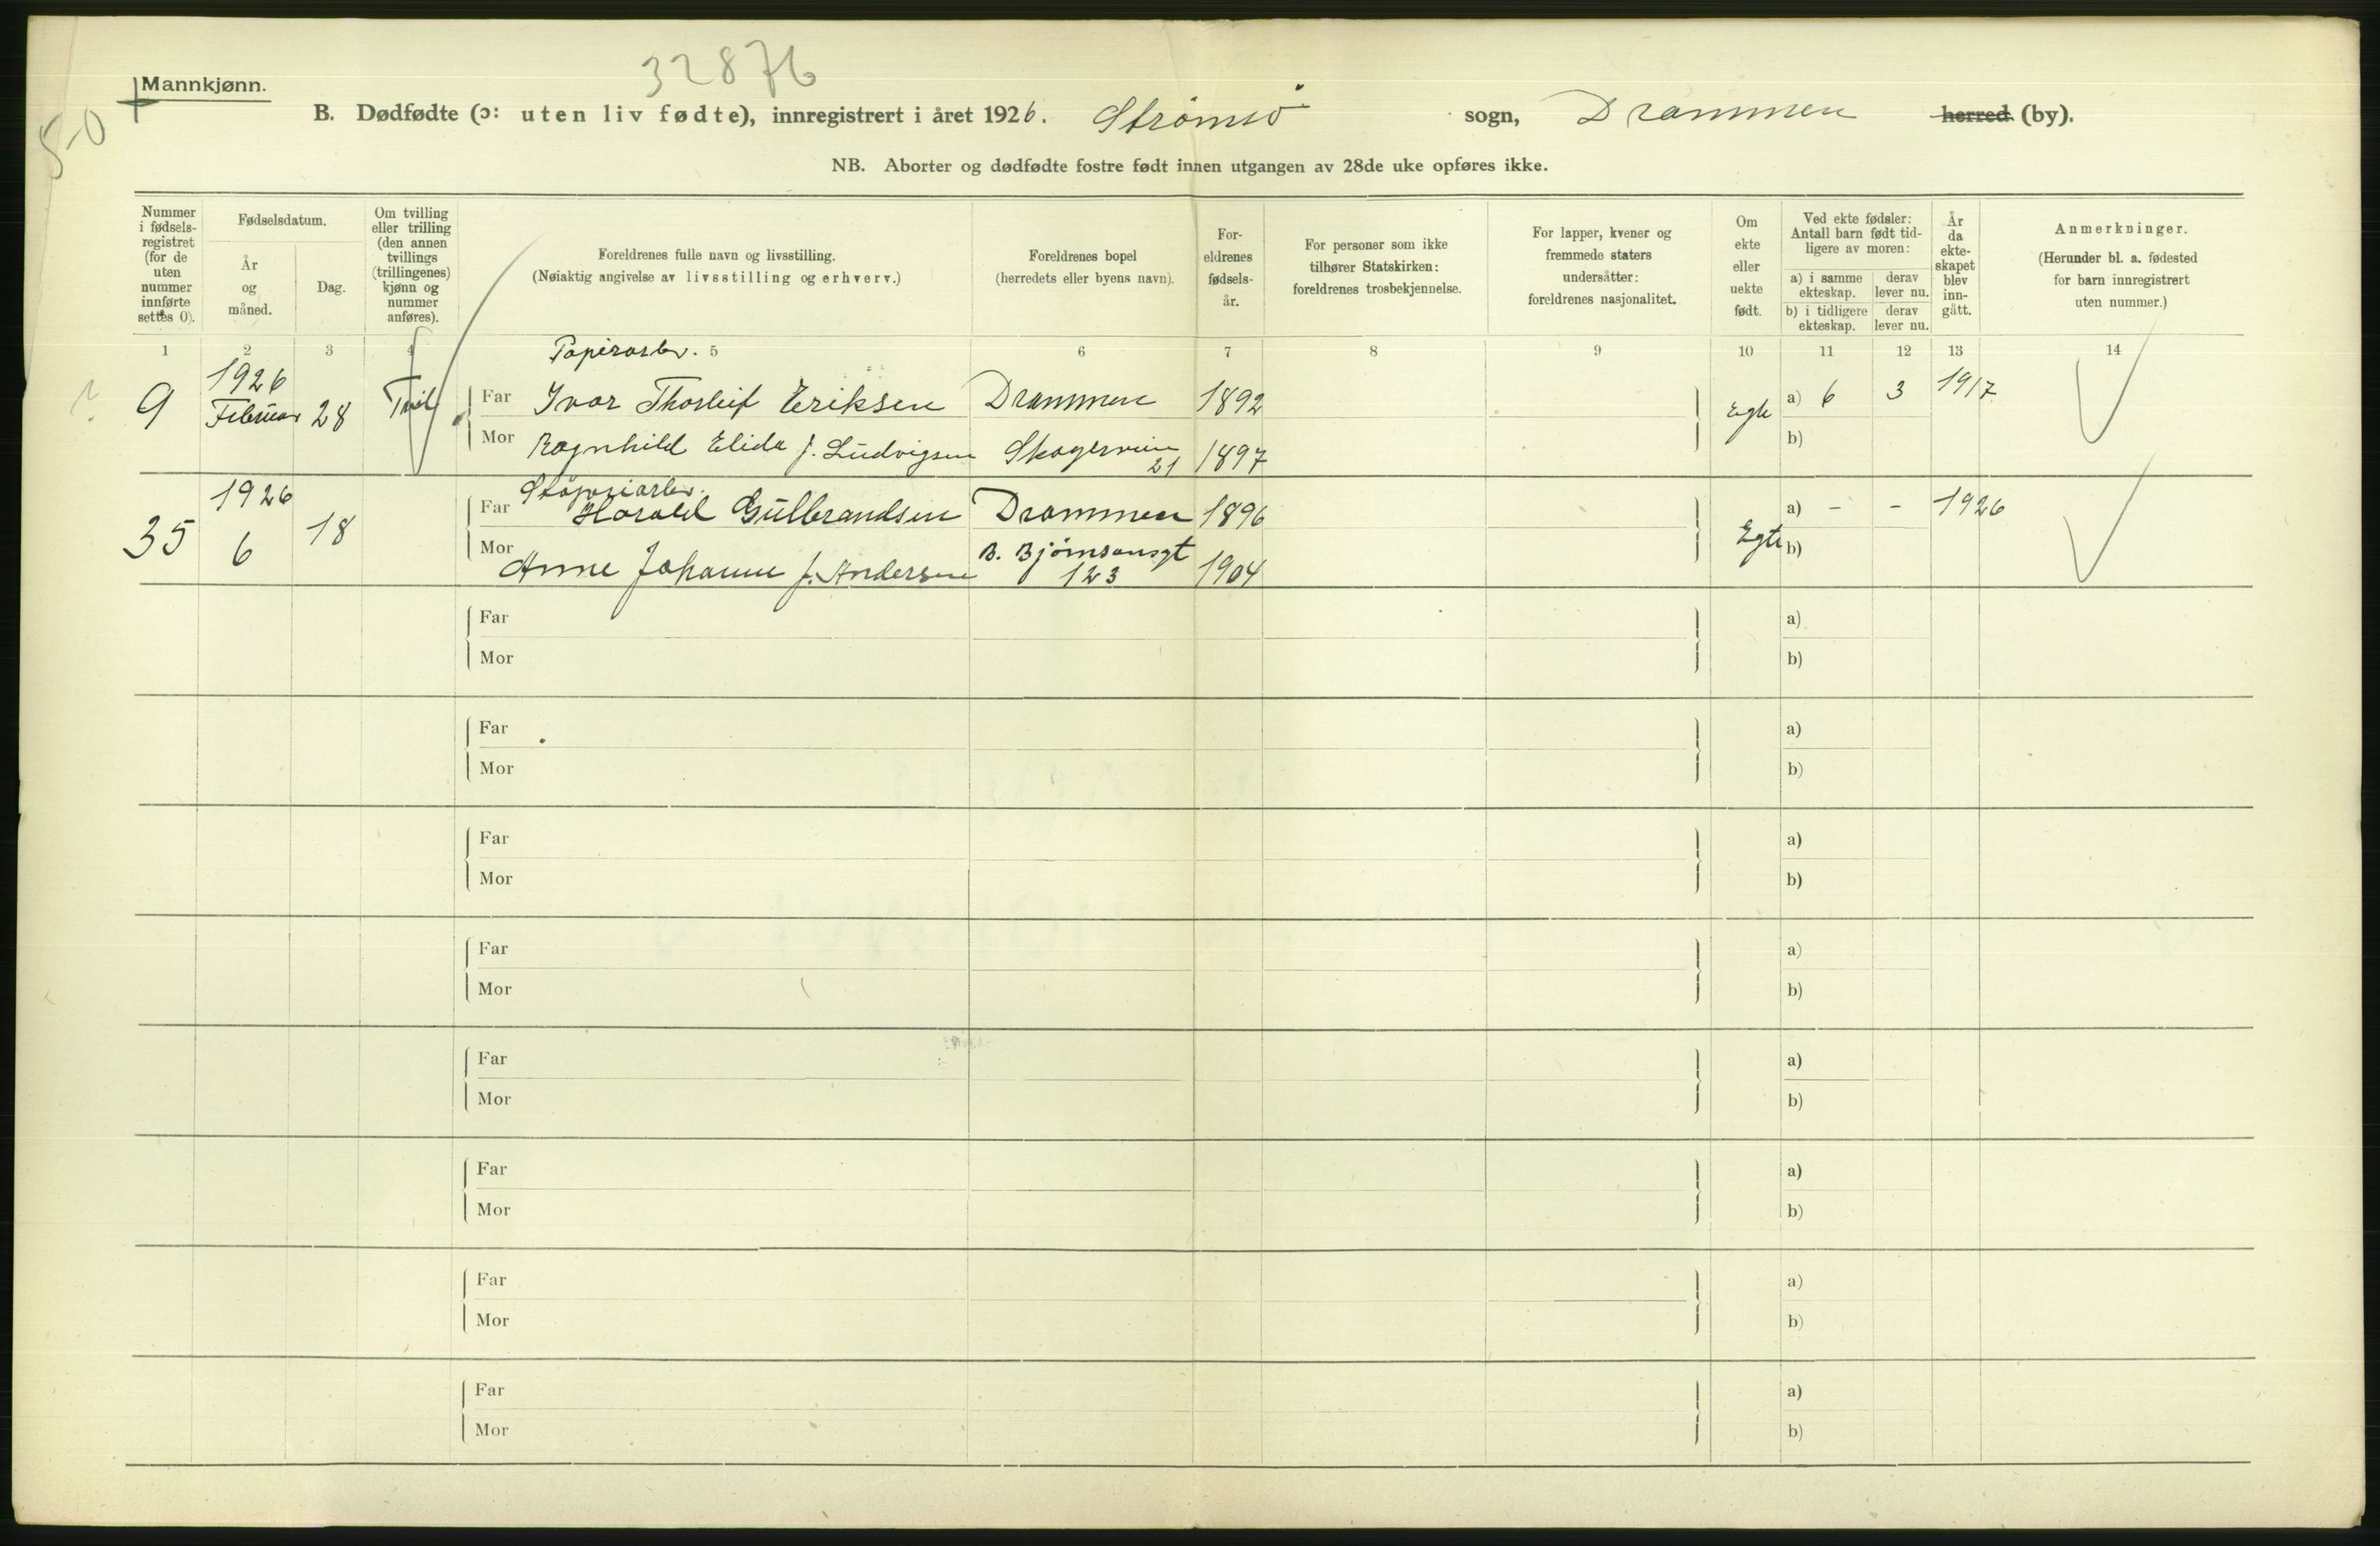 32876
50
Mannkjønn.
B. Dødfødte (ɔ: uten liv fødte), innregistrert i året 1926. Strømsö sogn, Drammen herred (by).
NB. Aborter og dødfødte fostre født innen utgangen av 28de uke opføres ikke.
Nummer
i fødsels-
registret
(for de
uten
nummer
innførte
settes 0).
Fødselsdatum.
År
og
måned.
Dag.
Om tvilling
eller trilling
(den annen
tvillings
(trillingenes)
kjønn og
nummer
anføres).
Foreldrenes fulle navn og livsstilling.
(Nøiaktig angivelse av livsstilling og erhverv.)
Foreldrenes bopel
(herredets eller byens navn).
For-
eldrenes
fødsels-
år.
For personer som ikke
tilhører Statskirken:
foreldrenes trosbekjennelse.
For lapper, kvener og
fremmede staters
undersåtter:
foreldrenes nasjonalitet.
Om
ekte
eller
uekte
født.
Ved ekte fødsler:
Antall barn født tid-
ligere av moren:
a) i samme
ekteskap.
derav
lever nu.
b) i tidligere
ekteskap.
derav
lever nu.
År
da
ekte-
skapet
blev
inn-
gått.
Anmerkninger.
(Herunder bl. a. fødested
for barn innregistrert
uten nummer.)
1 2 3 4 5 6 7 8 9 10 11 12 13 14
Papirarb.
9 1926 Februar 28 Tvil
Far Ivar Thorleif Eriksen Drammen 1892 Egte a) 6 3 1917
Mor Ragnhild Elida f. Ludvigsen Skogerveien 21 1897 b)
35 1926 6 18
Far Harald Gulbrandsen Drammen 1896 Egte a) - - 1926
Mor Anne Johanne f. Andersen B. Bjørnsonsgt 123 1904 b)
Far a)
Mor b)
Far a)
Mor b)
Far a)
Mor b)
Far a)
Mor b)
Far a)
Mor b)
Far a)
Mor b)
Far a)
Mor b)
Far a)
Mor b)